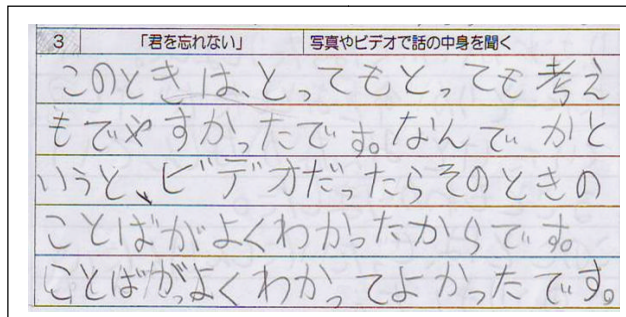 3 「君を忘れない」 写真やビデオで話の中身を聞く
このときは、とってもとっても考え
もでやすかったです。なんでかと
いうと、ビデオだったらそのときの
ことばがよくわかったからです。
ことばがよくわかってよかったです。